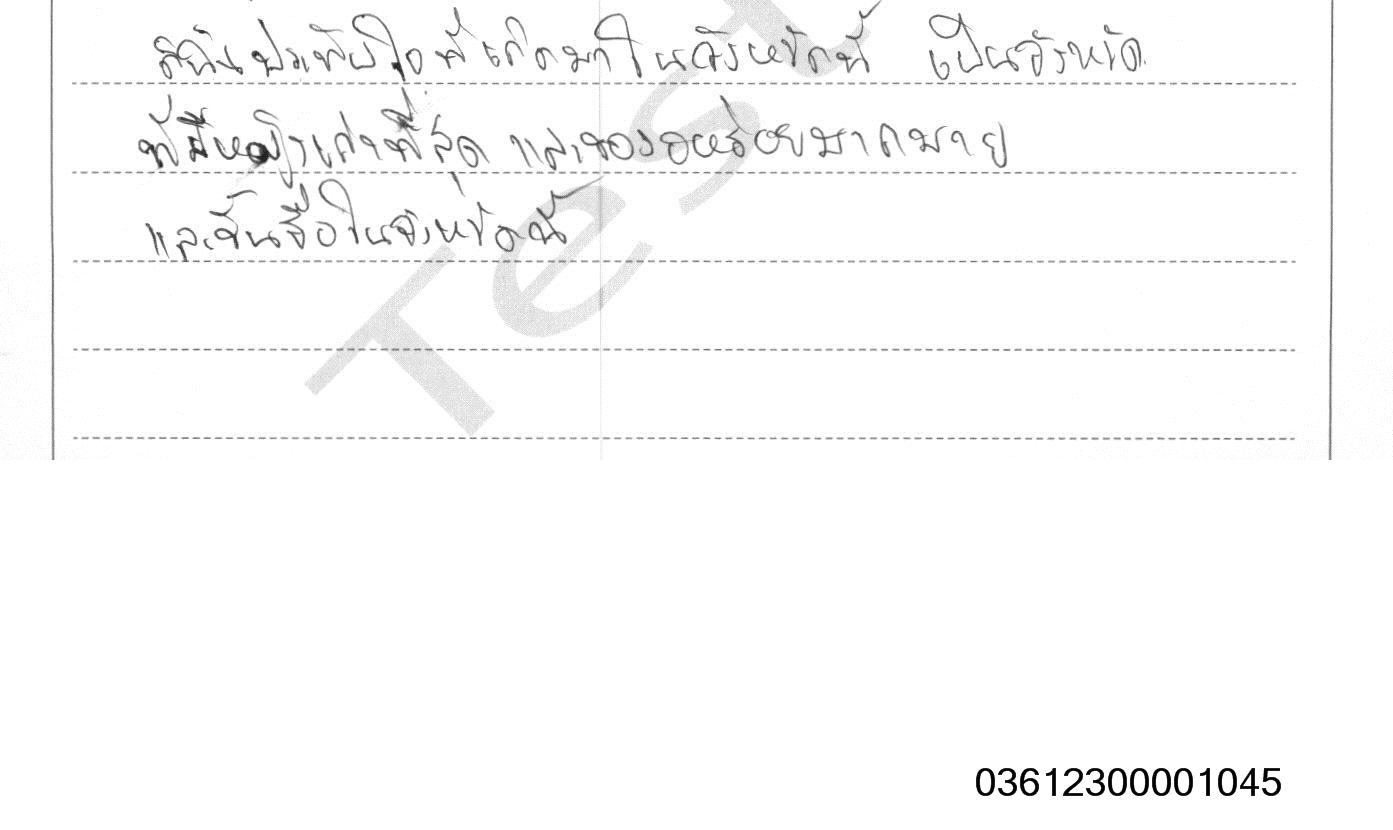 ดิฉันประทับใจที่เกิดมาในจังหวัดนี้ เป็นจังหวัด
ที่มีหญิงเก่าที่สุด และของอหร่อยมากมาย
และขึ้นชื่อในจังหวัดนี้
Test
03612300001045